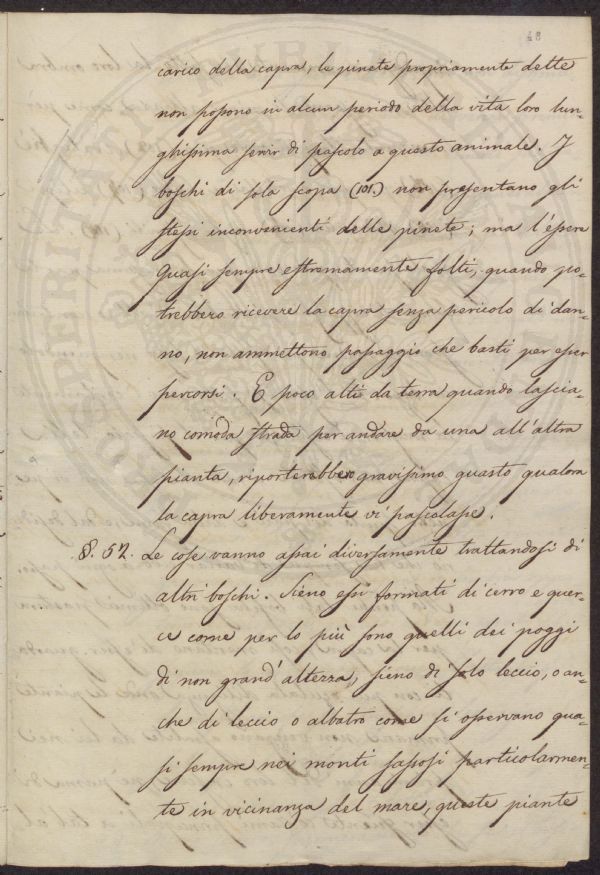 48
carico della capra, le pinete propriamente dette
non possono in alcun periodo della vita loro lun-
ghissima servir di pascolo a questo animale. I
boschi di sola scopa (101.) non presentano gli
stessi inconvenienti delle pinete; ma l'essere
quasi sempre estremamente folti, quando po-
trebbero ricevere la capra senza pericolo di dan-
no, non ammettono passaggio che basti per esser
percorsi. E poco alti da terra quando lascia-
no comoda strada per andare da una all'altra
pianta, riporterebbero gravissimo guasto qualora
la capra liberamente vi pascolasse.
§. 52. Le cose vanno assai diversamente trattandosi di
altri boschi. Sieno essi formati di cerro e quer-
ce come per lo più sono quelli dei poggi
di non grand'altezza, sieno di solo leccio, o an-
che di leccio o albatro come si osservano qua-
si sempre nei monti sassosi particolarmen-
te in vicinanza del mare, queste piante